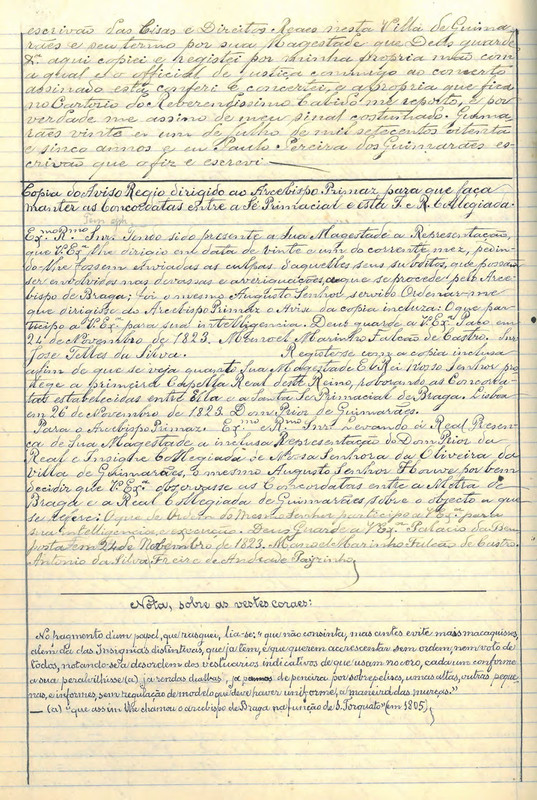 escrivão das Cisas e Direitos Reaes nesta Villa de Guima-
rães e seu termo por sua Magestade que Deus guarde
&.ª aqui copiei e registei por minha propria mão com
a qual e o official de justiça commigo ao concerto
assinado esta conferi e concertei, e a propria que fica
no Cartorio do Reverendissimo Cabido me reporto, e por
verdade me assino de meu sinal costumado. Guima-
rães vinte e um de Julho de mil setecentos oitenta
e sinco annos e eu Paulo Pereira dos Guimarães es-
crivão que a fiz e escrevi.
Copia do Aviso Regio dirigido ao Arcebispo Primaz para que faça
manter as Concordatas entre a Sé Primacial e esta I. e R. Collegiada.
Ex.mo R.mo Snr. Tendo sido presente a Sua Magestade a Representação,
que V.ª Ex.ª lhe dirigio em data de vinte e um do corrente mez, pedin-
do lhe fossem enviadas as culpas d'aquelles seus subditos, que possão
ser envolvidos nas devassas e averiguações, a que se procede pelo Arce-
bispo de Braga: foi o mesmo Augusto Senhor servido Ordenar-me
que dirigisse ao Arcebispo Primaz o Aviso da copia incluza: O que par-
ticipo a V.ª Ex.ª para sua intelligencia. Deus guarde a V.ª Ex.ª Paço em
24 de Novembro de 1823. Manoel Marinho Falcão de Castro. Snr.
José Telles da Silva. Registe-se com a copia inclusa
afim de que se veja quanto Sua Magestade El Rei Nosso Senhor pro
tege a primeira Capella Real deste Reino, roborando as Concorda
tas estabelecidas entre Ella e a Santa Sé Primacial de Braga. Lisboa
em 26 de Novembro de 1823. Dom Prior de Guimarães.
Para o Arcebispo Primaz. Ex.mo e R.mo Snr. Levando á Real Presen-
ça de Sua Magestade a inclusa Representação do Dom Prior da
Real e Insigne Collegiada de Nossa Senhora da Oliveira da
Villa de Guimarães, o mesmo Augusto Senhor Houve por bem
decidir que V.ª Ex.ª observasse as Concordatas entre a Mitra de
Braga e a Real Collegiada de Guimarães sobre o objecto a que
se refere: O que de Ordem do Mesmo Senhor participo a V.ª Ex.ª para
sua intelligencia, e execução. Deus Guarde a V.ª Ex.ª Palacio da Bem
posta em 24 de Novembro de 1823. Manoel Marinho Falcão de Castro.
Antonio da Silva Freire de Andrade
Nota, sobre as vestes coraes:
No fragmento d'um papel, que rasguei, lia-se: "que não consinta, mas antes evite mais macaquisses,
alem da das Insignias distintivas, que ja tem, e que querem acrescentar sem ordem, nem voto de
todos, notando-se a desordem dos vestuarios indicativos de que usam no coro, cada um conforme
a sua peralvilhisse (a) ja rendas ja de peneira por sobrepelises, umas altas, outras peque
nas, e informes, sem regulação de modelo que deve haver uniforme, a maneira das murças."
— (a) "que assim lhe chamou o arcebispo de Braga na função de S. Torquato" (em 1805)